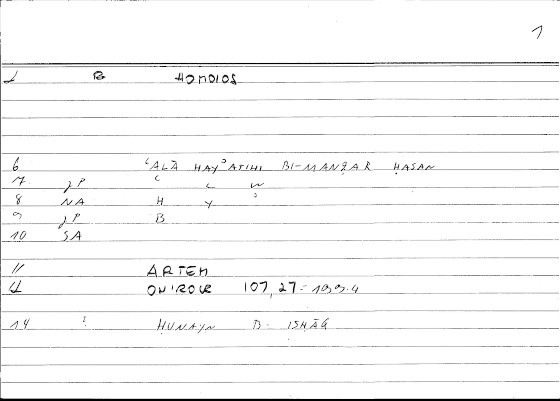 1
1 B HOMOIOS
6 ʿALĀ HAYʾATIHI BI-MANẒAR ḤASAN
7 JP ʿ L W
8 NA H Y ʾ
9 JP B
10 SA
11 ARTEM
ONIROCR 107,27 = 199.4
14 : ḤUNAYN B. ISḤĀQ